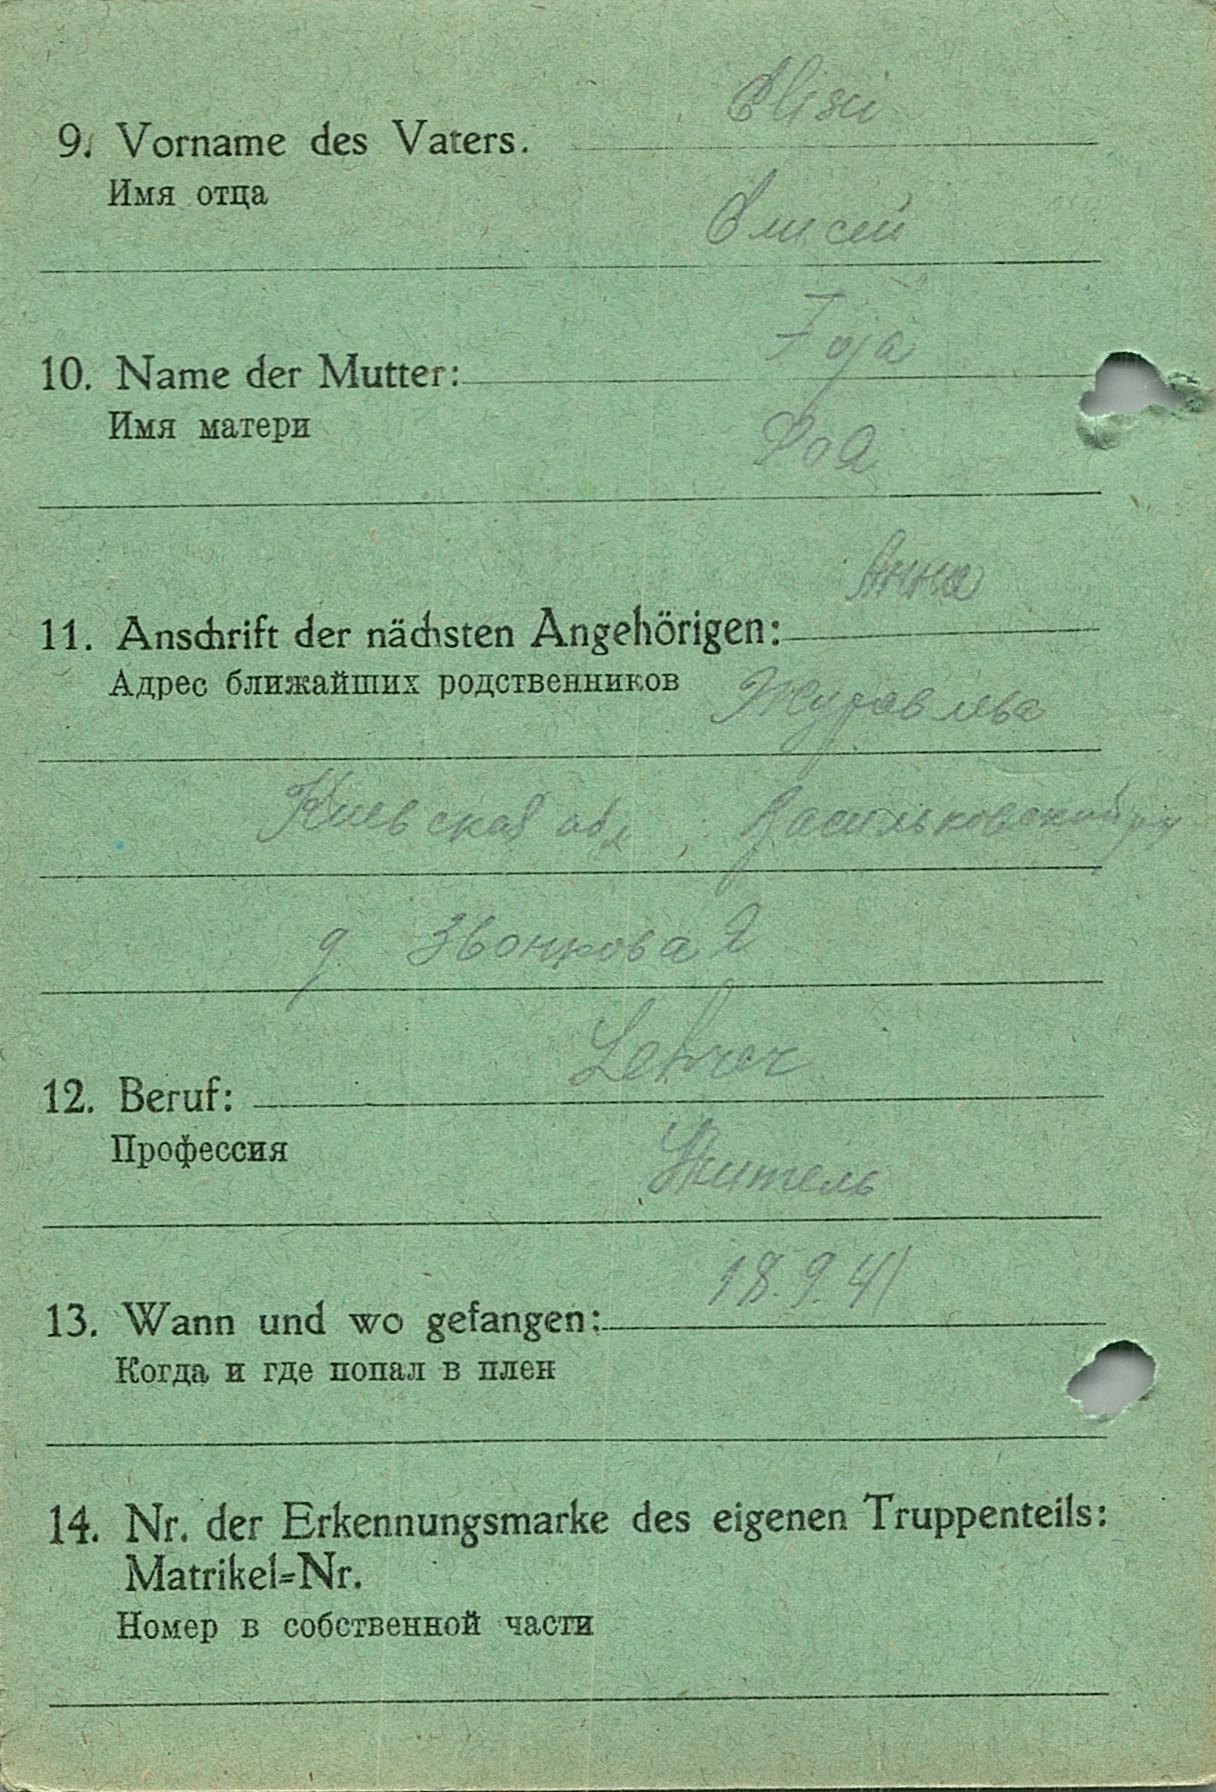 Elisei
9. Vorname des Vaters.
Имя отца
Елисей
Foja
10. Name der Mutter:
Имя матери
Фоя
Анна
11. Anschrift der nächsten Angehörigen:
Адрес ближайших родственников
Журавлева
Киевская обл Васильковский рн
д Звонковая
Lehrer
12. Beruf:
Профессия
Учитель
18.9.41
13. Wann und wo gefangen:
Когда и где попал в плен
14. Nr. der Erkennungsmarke des eigenen Truppenteils:
Matrikel=Nr.
Номер в собственной части